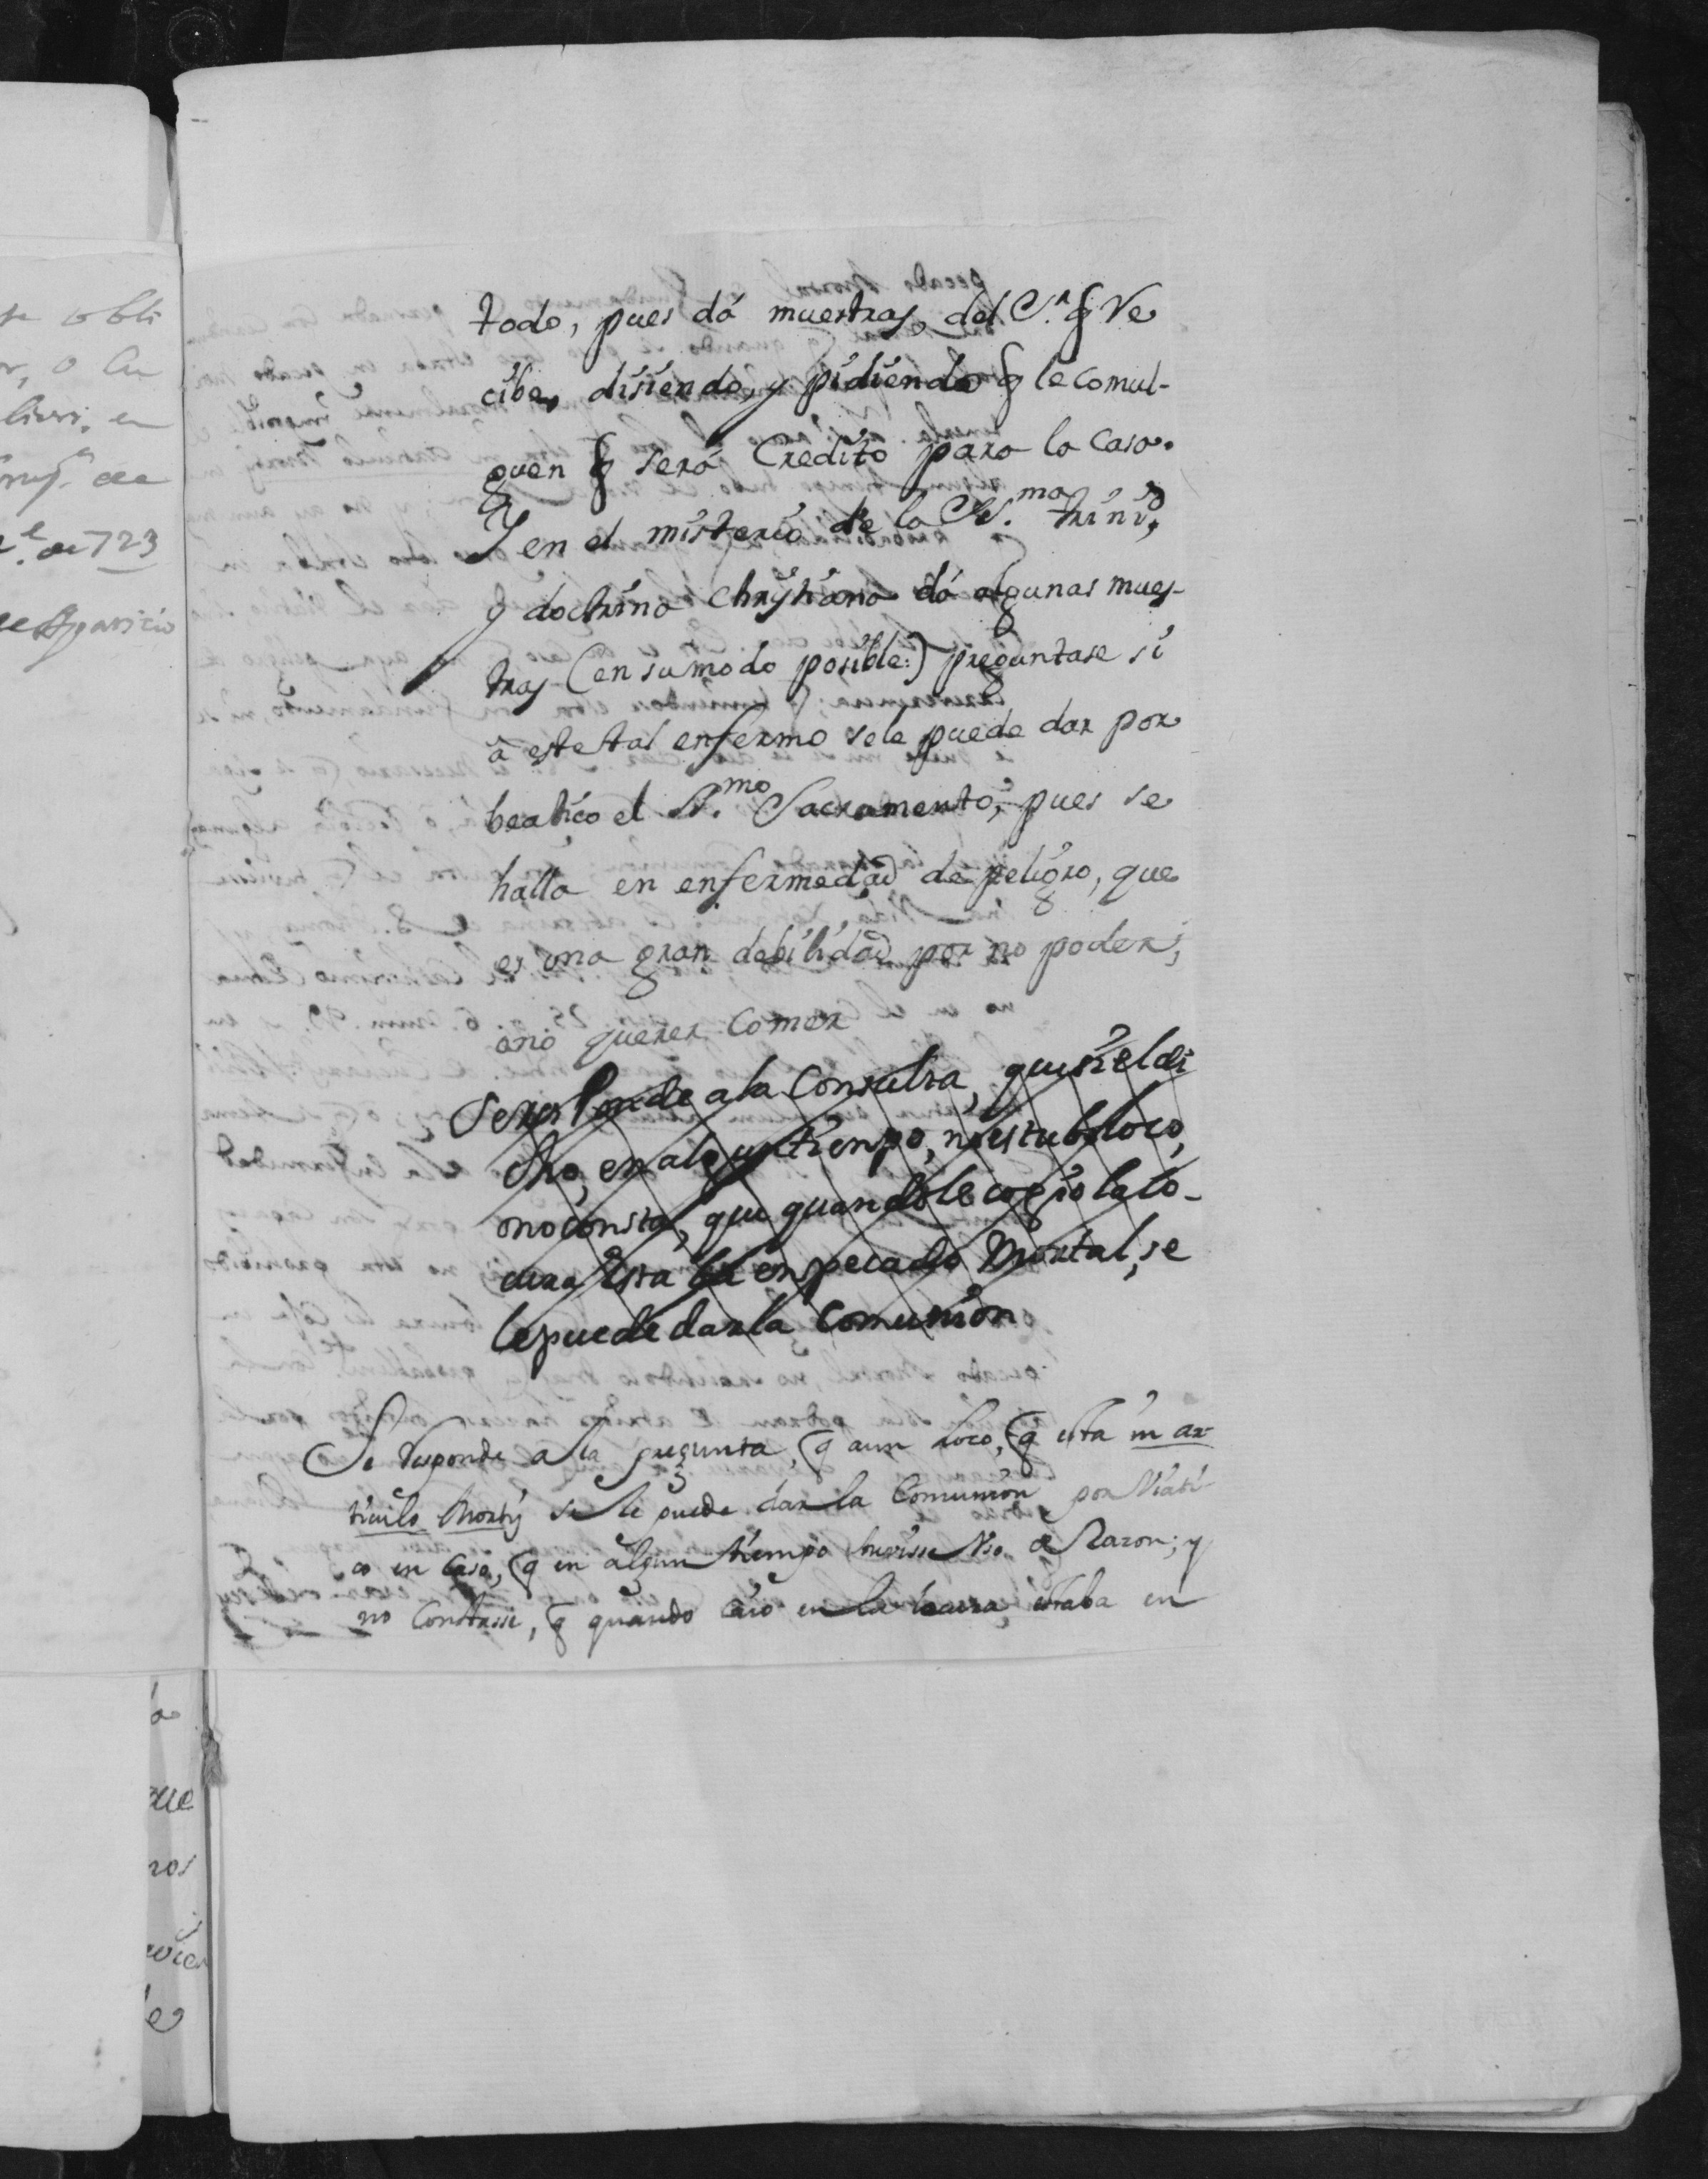 todo, pues dá muestras, del S.r q Re
cibe, disiendo, y pidiendo q le comul-
guen q será Credito para la casa.
Y en el misterio de la SS.ma trinid,
y doctrina Chrystiana dá algunas mues-
tras (en su modo posible:) preguntase si
â este tal enfermo sele puede dar por
beatico el SS.mo Sacramento, pues se
halla en enfermedad de peligro, que
es una gran debilidad por no poder;
ono querer Comer
Seresponde ala Consulta, que si el di
cho, en algun tienpo, no estubo loco,
ono consta, que quando le cogio la lo-
cura esta ba en pecado Mortal, se
le puede dar la Comunion
Se Responde a la pregunta, q aun loco, q esta in ar-
ticulo Mortis se le puede dar la Comunion por Viati
co en Caso, q en algun tiempo tuviesse Vso de Razon; y
no Constasse, q quando caio en la locura, estaba en
se obli
r, o Cu
de 723
Aparicio
que
nos